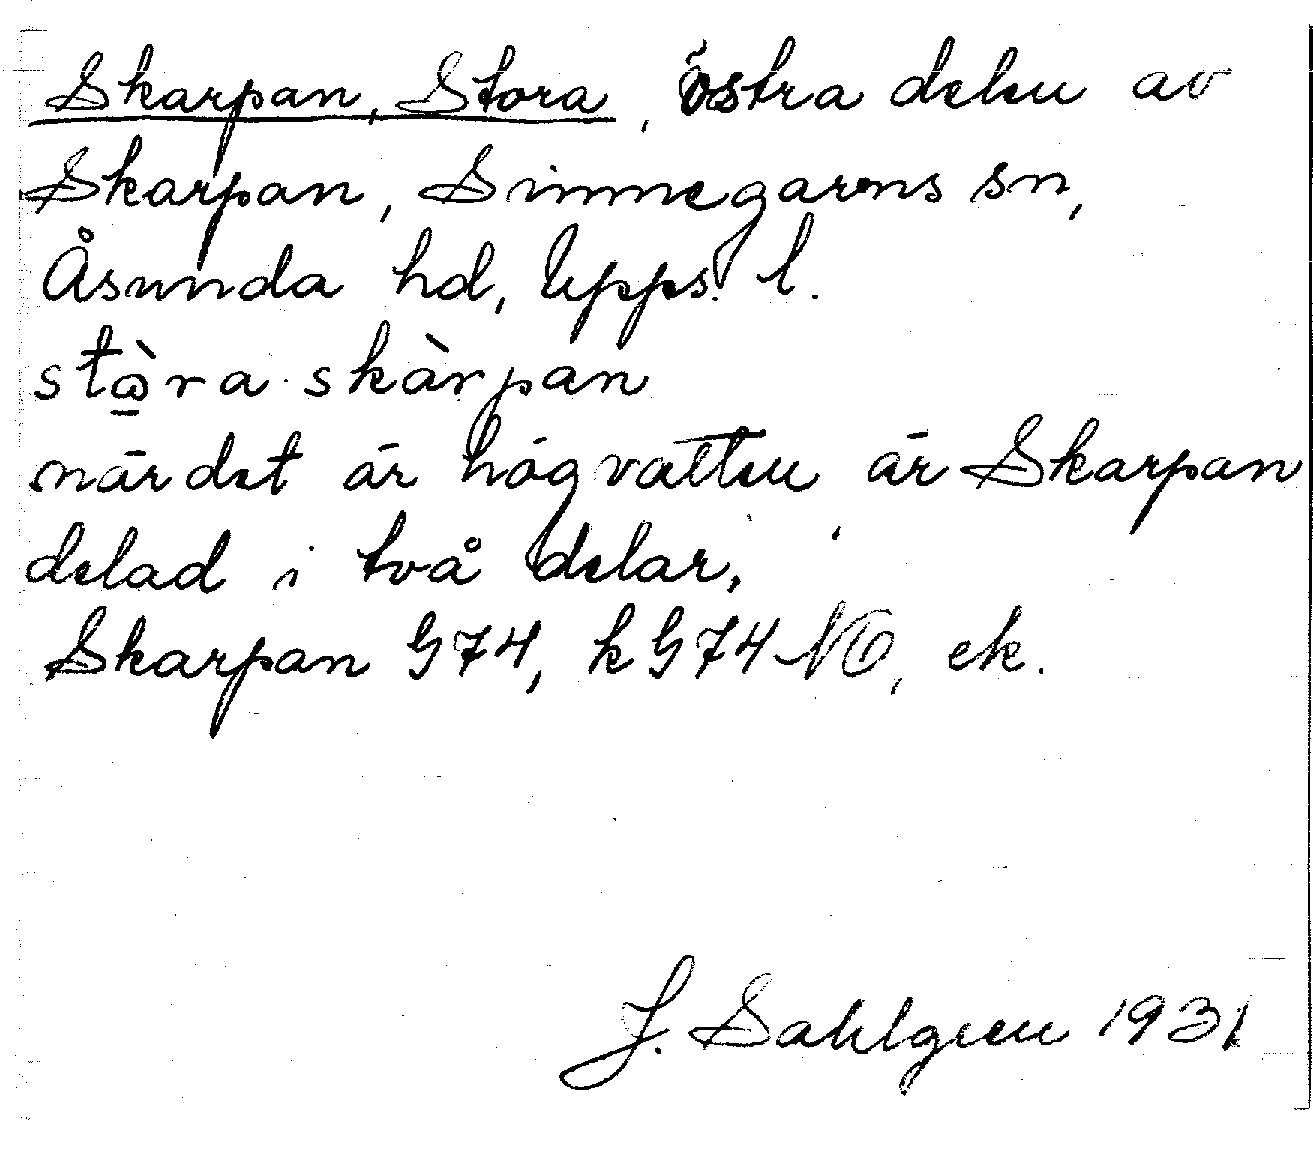 Skarpan, Stora, östra delen av
Skarpan, Simmegarns sn,
Åsunda hd, Upps. l.
stὼ̱ra skàrpan
när det är högvatten är Skarpan
delad i två delar,
Skarpan G74, k G74 NO, ek.
J. Sahlgren 1931